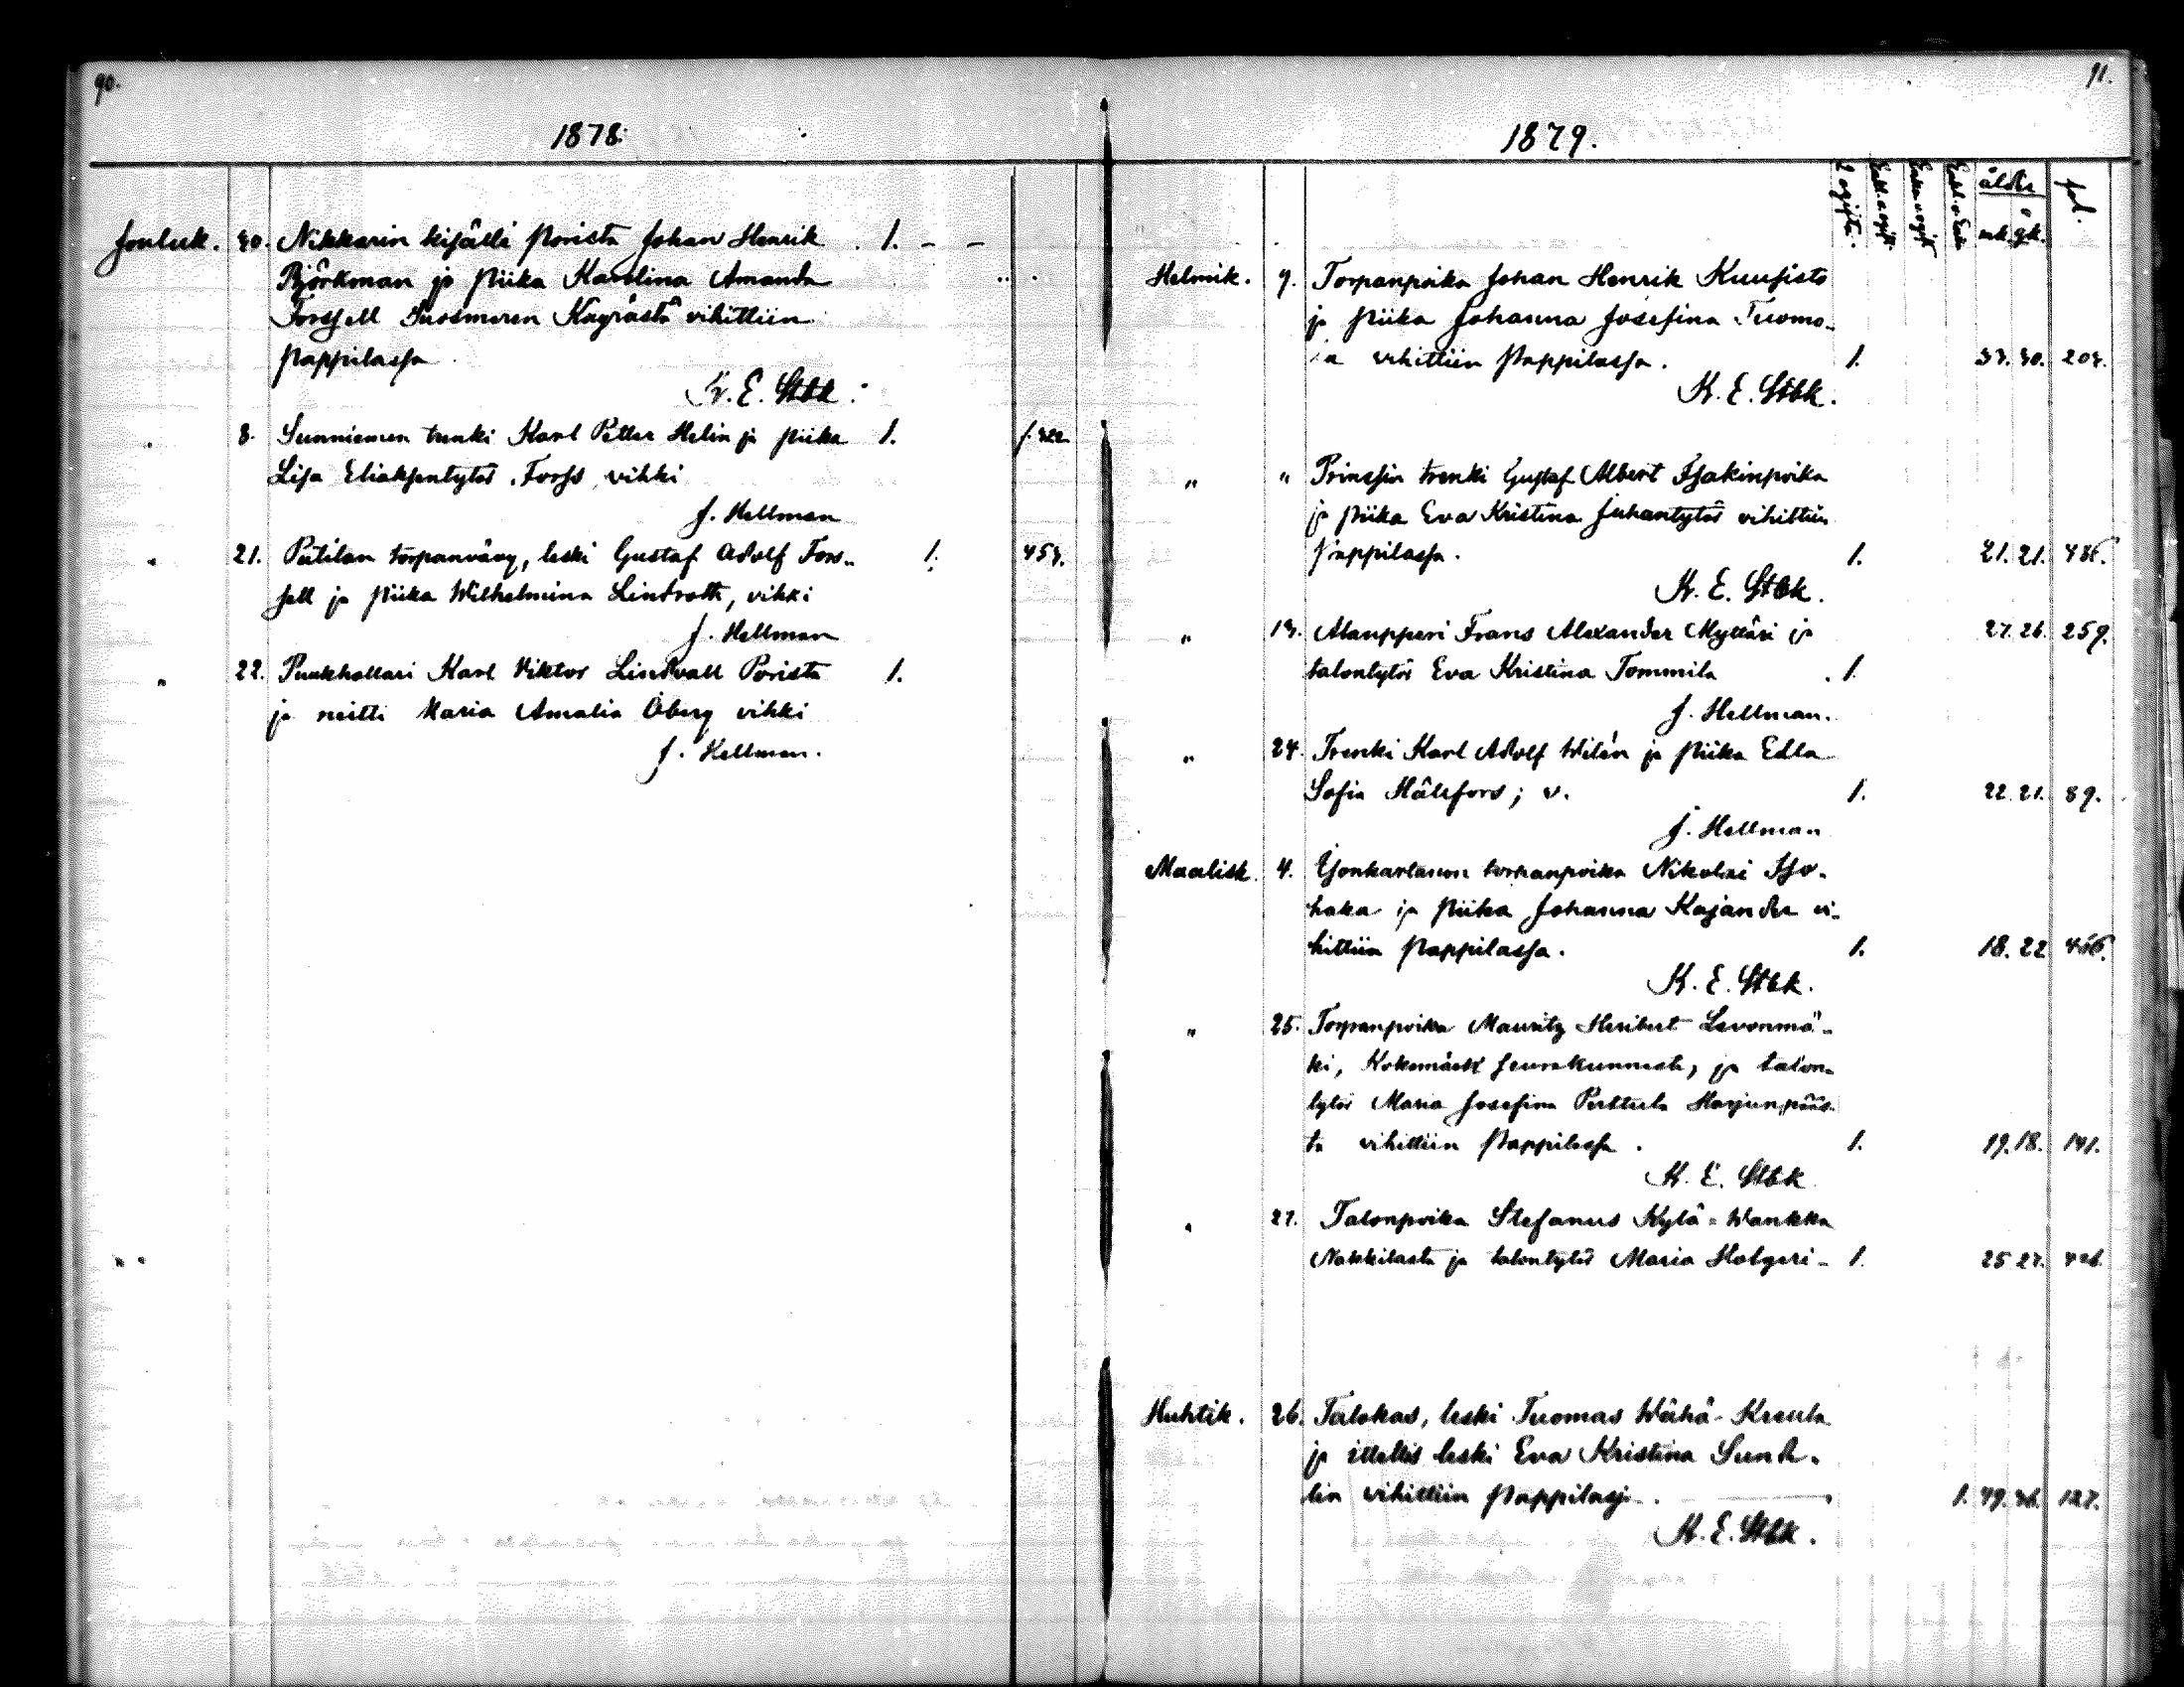 90.
1878.
Jouluk. 30. Nikkarin kisälli Porista Johan Henrik 1. - -
Björkman ja Piika Karolina Amanda
Forssell Suosmeren Käyrästä vihittiin
Pappilassa
K. E. Stbk.
8. Sunniemen trenki Karl Petter Helin ja piika 1. f. 322
Lisa Eliaksentytär Forss, vihki
J. Hellman
21. Pietilän torpanvävy, leski Gustaf Adolf Fors- 1. 453.
sell ja Piika Wilhelmina Lindroth, vihki
J. Hellman
" 22. Puukhollari Karl Viktor Lindvall Porista 1.
ja neitti Maria Amalia Öberg vihki
J. Hellman.
91.
1879.
2 ogifta. ålder fol.
mk. qk.
Helmik. 9. Torpanpoika Johan Henrik Kuusisto
ja Piika Johanna Josefina Tuomo-
la vihittiin Pappilassa. 1. 33. 30. 203.
K. E. Stbk.
" " Prinssin trenki Gustaf Albert Isakinpoika
ja Piika Eva Kristina Juhantytär vihittiin
Pappilassa. 1. 21. 21. 486.
K. E. Stbk.
" 13. Alaupperi Frans Alexander Mylläri ja 27. 26. 259.
talontytär Eva Kristina Tommila 1.
J. Hellman.
" 24. Trenki Karl Adolf Wilén ja Piika Edla
Sofia Hälsfors; v. 1. 22. 21. 89.
J. Hellman
Maalisk. 4. Ysonkartanon torpanpoika Nikolai Iso-
haka ja Piika Johanna Kajander vi-
hittiin Pappilassa. 1. 18. 22 456.
K. E. Stbk.
" 25. Torpanpoika Mauritz Heribert Levonmä-
ki, Kokemäen seurakunnasta, ja talon-
tytär Maria Josefina Perttula Harjunpääs-
tä vihittiin Pappilassa. 1. 19. 18. 141.
K. E. Stbk
" 27. Talonpoika Stefanus Kylä-Wankka
Nakkilasta ja talontytär Maria Holgeri- 1. 25 27.
Huhtik. 26. Talokas, leski Tuomas Wähä-Kreula
ja itellis leski Eva Kristina Sund-
lin vihittiin Pappilassa. 1. 49. 127.
K. E. Stbk.